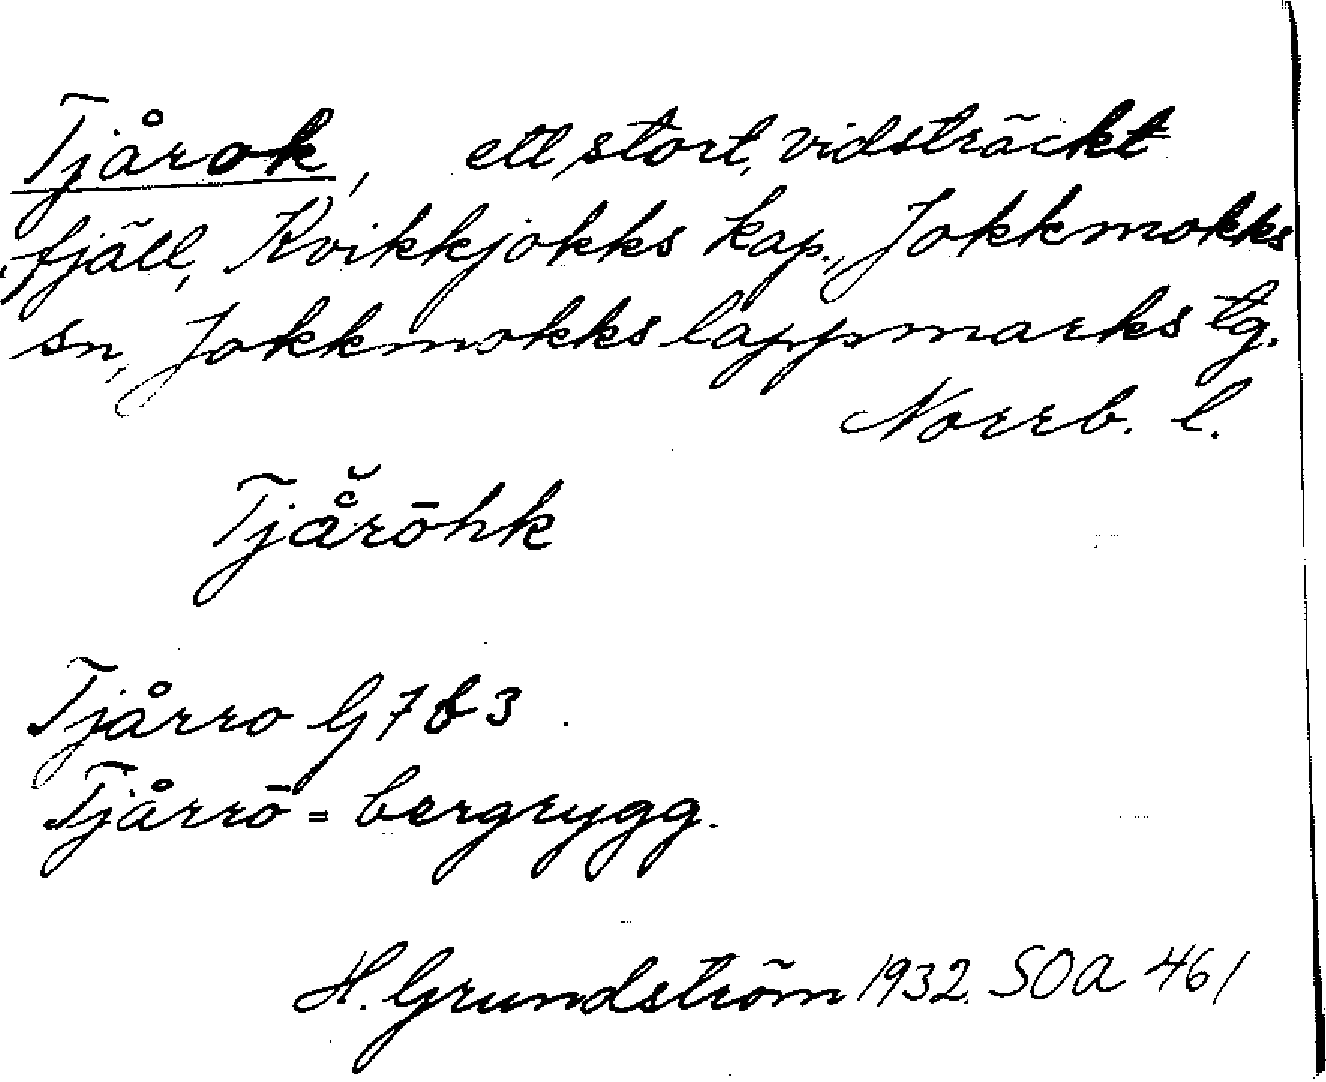 Tjårok, ett stort, vidsträckt
fjäll, Kvikkjokks kap., Jokkmokks
sn, Jokkmokks lappmarks tg.
Norrb. l.
Tjå̆rōhk
Tjårro G7b3
Tjårrō = bergrygg.
H. Grundström 1932. SOA 461